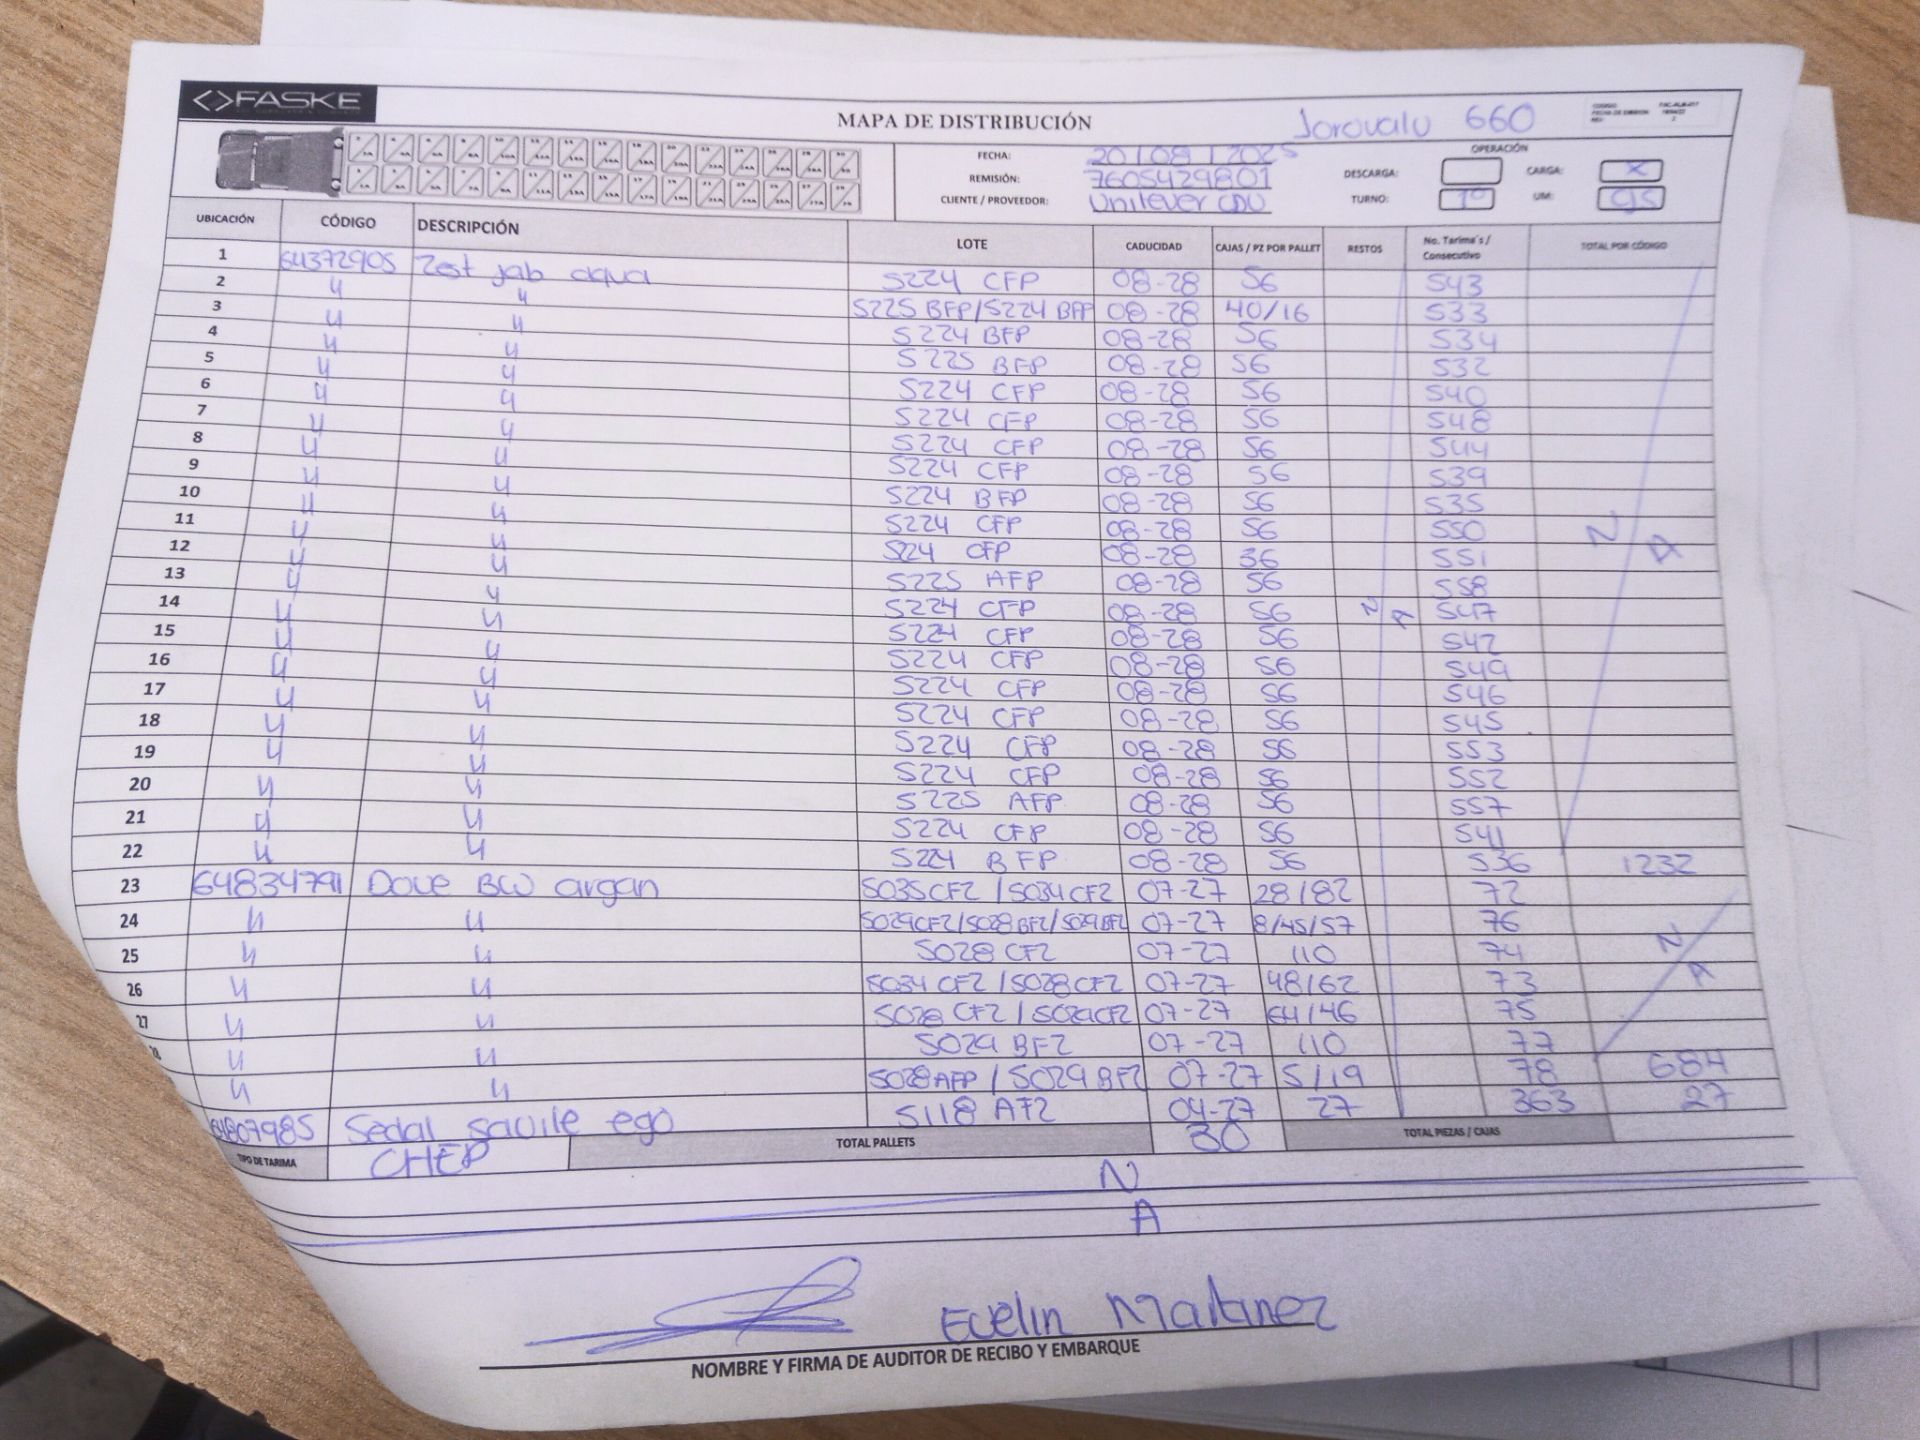 <>FASKE
MAPA DE DISTRIBUCIÓN
Jorovalu 660
FECHA: 20/08/2025
REMISIÓN: 7605429801
CLIENTE / PROVEEDOR: Unilever CDU
OPERACIÓN
DESCARGA: CARGA: X
TURNO: 1° UM: CJS
UBICACIÓN CÓDIGO DESCRIPCIÓN LOTE CADUCIDAD CAJAS / PZ POR PALLET RESTOS No. Tarima's / Consecutivo TOTAL POR CÓDIGO
1 64372905 Zest jab aqua S224 CFP 08-28 56 543
2 " " S225 BFP/S224 BFP 08-28 40/16 533
3 " " S224 BFP 08-28 56 534
4 " " S225 BFP 08-28 56 532
5 " " S224 CFP 08-28 56 540
6 " " S224 CFP 08-28 56 548
7 " " S224 CFP 08-28 56 544
8 " " S224 CFP 08-28 56 539
9 " " S224 BFP 08-28 56 535
10 " " S224 CFP 08-28 56 550
11 " " S24 CFP 08-28 36 551
12 " " S225 AFP 08-28 56 558
13 " " S224 CFP 08-28 56 N/A 547
14 " " S224 CFP 08-28 56 542
15 " " S224 CFP 08-28 56 549
16 " " S224 CFP 08-28 56 546
17 " " S224 CFP 08-28 56 545
18 " " S224 CFP 08-28 56 553
19 " " S224 CFP 08-28 56 552
20 " " S225 AFP 08-28 56 557
21 " " S224 CFP 08-28 56 541
22 " " S224 BFP 08-28 56 536 1232
N/A
23 64834791 Dove BW argan S035CF2 / S034CF2 07-27 28/82 72
24 " " S029CF2/S028BF2/S029BF2 07-27 8/45/57 76
25 " " S028 CF2 07-27 110 74
26 " " S034 CF2 / S028CF2 07-27 48/62 73
27 " " S028 CF2 / S029CF2 07-27 64/46 75
28 " " S029 BF2 07-27 110 77
" " S028AFP / S029BF2 07-27 5/19 78 684
N/A
64807985 Sedal savile ego S118 AF2 04-27 27 363 27
TIPO DE TARIMA CHEP TOTAL PALLETS 30 TOTAL PIEZAS / CAJAS
N
A
Evelin Martinez
NOMBRE Y FIRMA DE AUDITOR DE RECIBO Y EMBARQUE